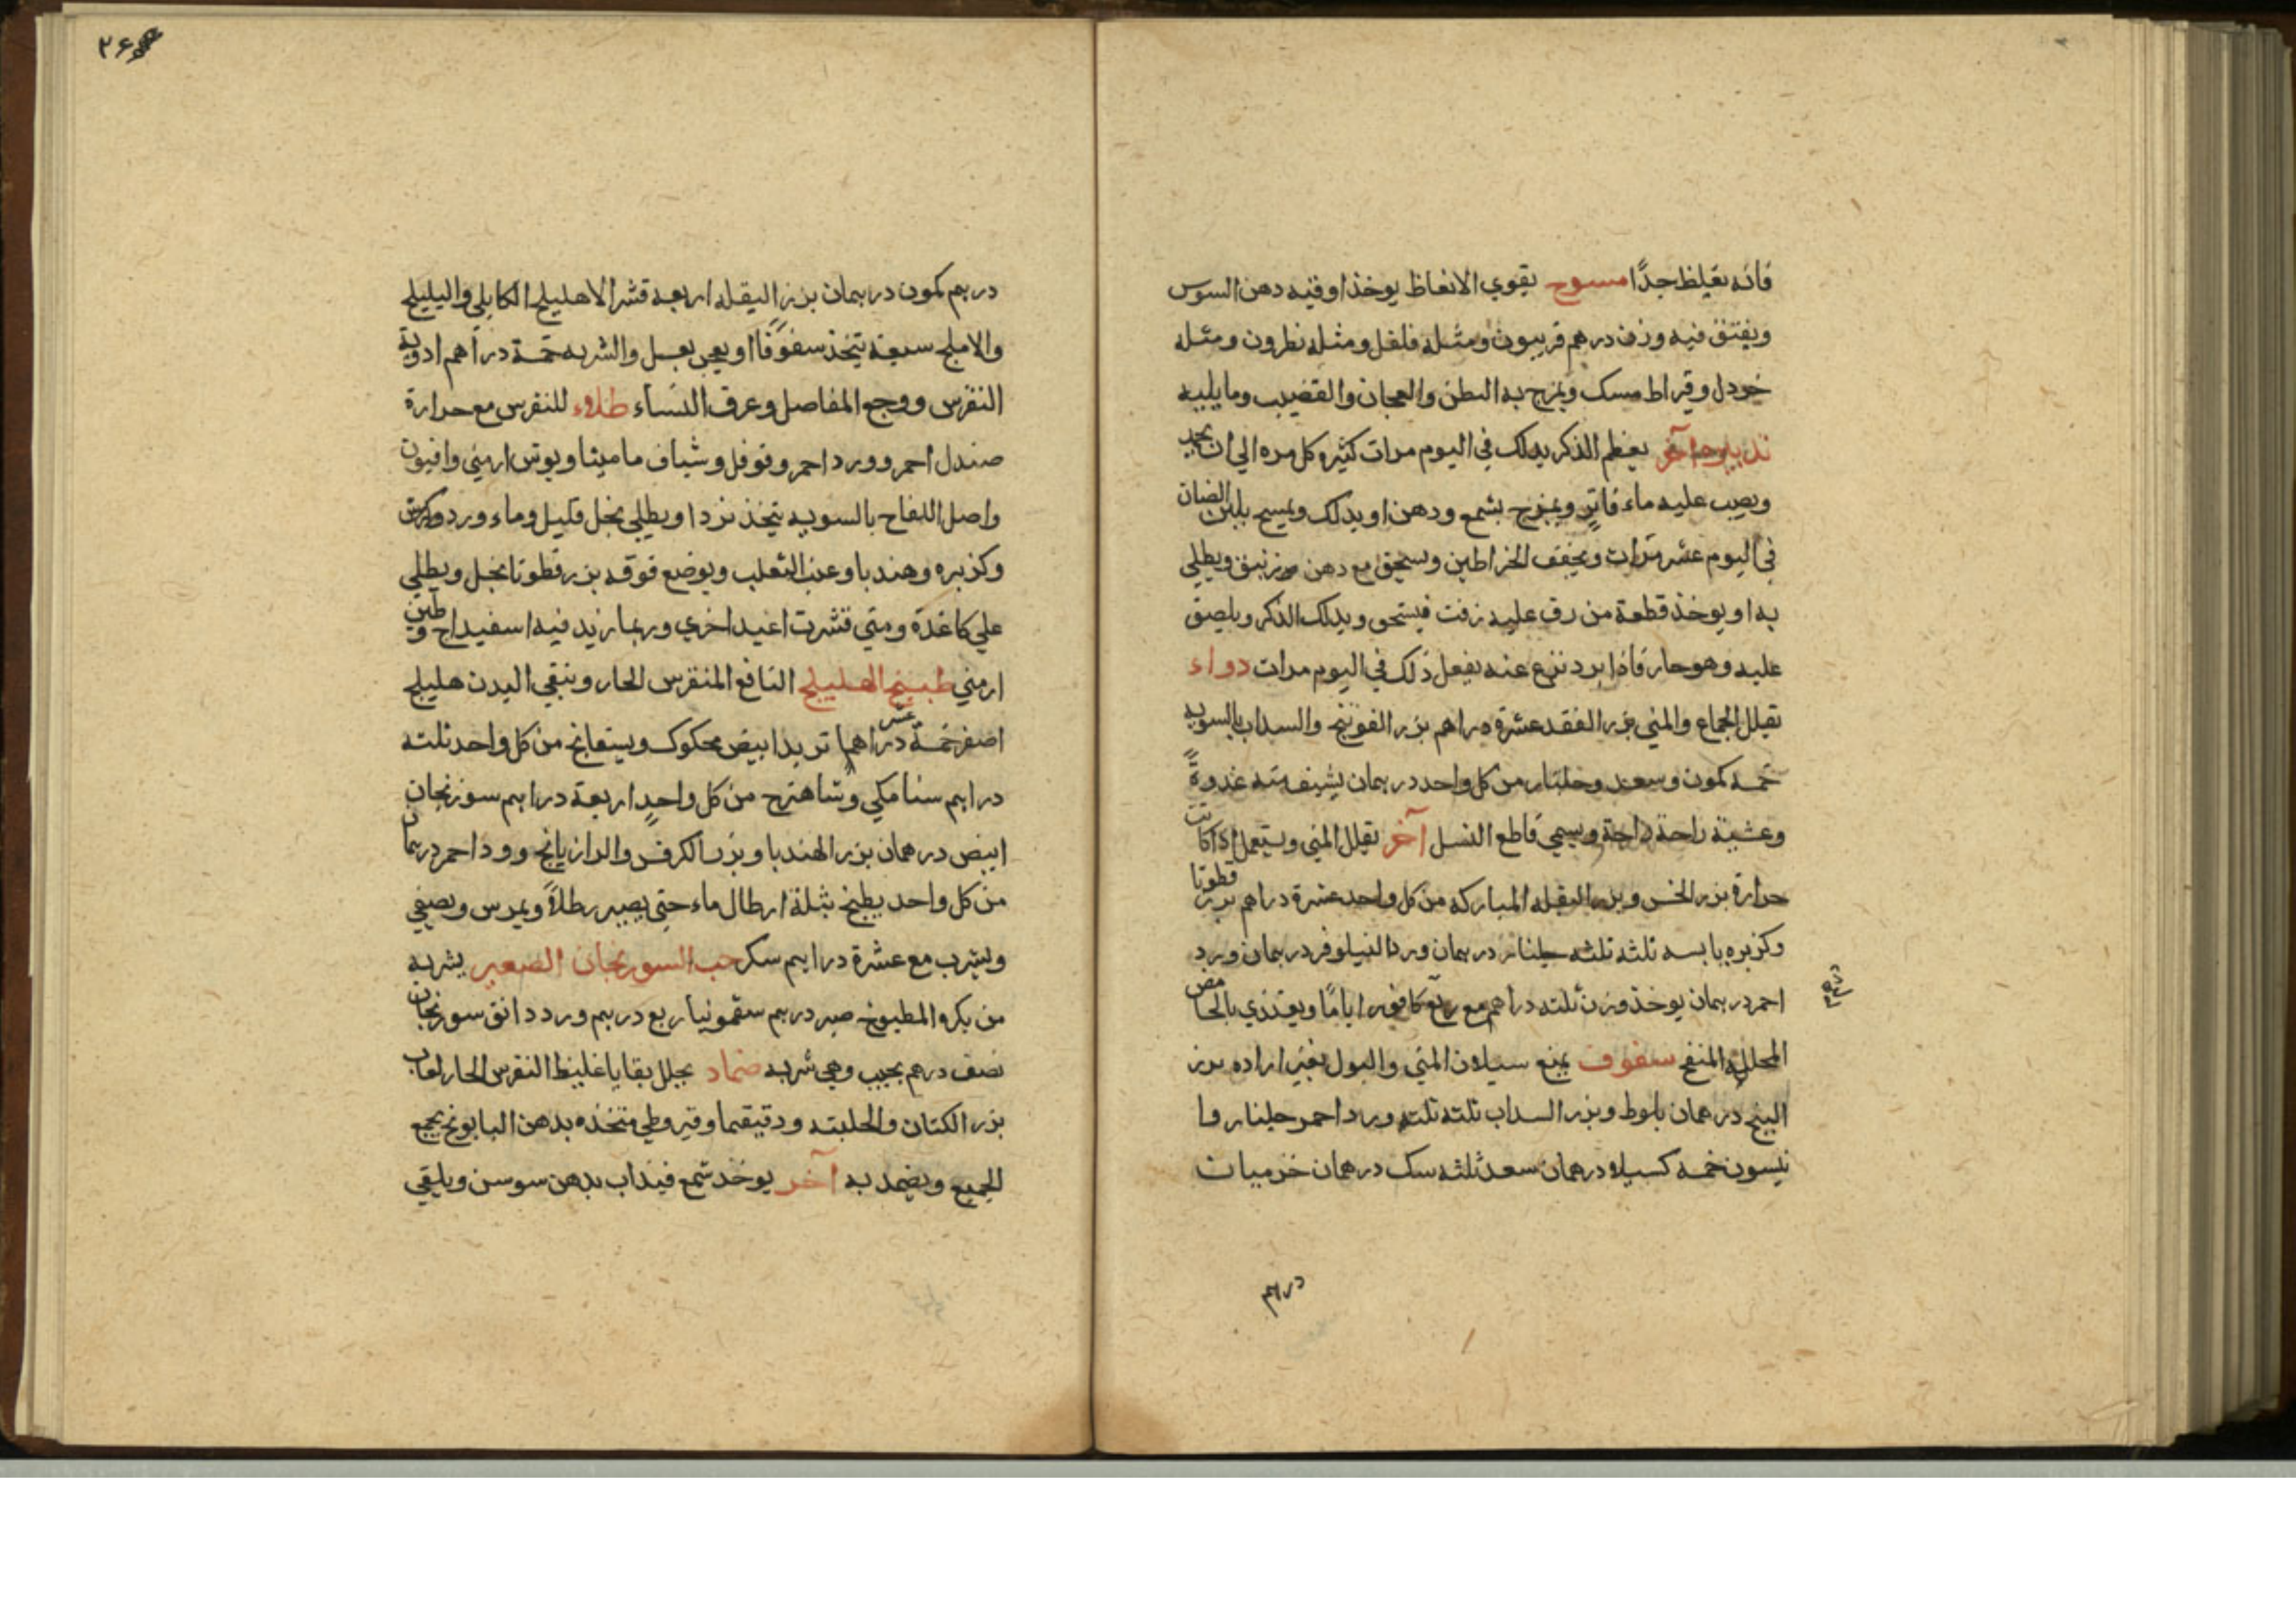 فانه يغلظ جدًا مسوح يقوي الانعاظ يوخذ اوقيه دهن السوس
ويفتق فيه وزن درهم فربيون ومثله فلفل ومثله نطرون ومثله
خردل وقيراط مسك ويمزج به البطن والعجان والقضيب وما يليه
تدبير آخر يعظم الذكر يدلك في اليوم مرات كثيره كل مره الي ان يحمر
ويصب عليه ماء فاتر ويمزج بشمع ودهن او يدلك ويمسح بلبن الضان
في اليوم عشر مرات ويجفف الخراطين ويسحق مع دهن زنبق ويطلي
به او يوخذ قطعة من رق عليه زفت فيسحق ويدلك الذكر ويلصق
عليه وهو حار فاذا برد نزع عنه يفعل ذلك في اليوم مرات دواء
تقلل الجماع والمني بزر الفقد عشرة دراهم بزر الفوتنج والسداب بالسويه
خمسه كمون وسعد وجلنار من كل واحد درهمان يشرب منه غدوةً
وعشية راحة راحة ويسمي قاطع النسل آخر تقلل المني ويستعمل اذا كانت
حرارة بزر الخس وبزر البقله المباركه من كل واحد عشرة دراهم بزر قطونا
وكزبره يابسه ثلثه ثلثه جلنار درهمان ورد النيلوفر درهمان ورد
احمر درهمان يوخذ وزن ثلثه دراهم مع ربع كافور اياما ويغتذي بالحامض
المحلل المنفخ سفوف يمنع سيلان المني والبول بغير اراده بزر
البنج درهمان بلوط وبزر السداب ثلثه ثلثه ورد احمر جلنار وا
نيسون خمسه كسيلا درهمان سعد ثلثه سك درهمان خزميان
درهم
درهم كمون درهمان بزر البقله اربعه قشر الاهليلج الكابلي والبليلج
والاملج سبعة يتخذ سفوفًا او يعجن بعسل والشربه خمسة دراهم ادوية
النقرس ووجع المفاصل وعرق النساء طلاء للنقرس مع حرارة
صندل احمر وورد احمر وفوفل وشياف ماميثا وبوش ارمني وافيون
واصل اللفاح بالسويه يتخذ نردا ويطلي بخل قليل وماء ورد
وكزبره وهندبا وعنب الثعلب ويوضع فوقه بزر قطونا بخل ويطلي
علي كاغدة ومتي قشرت اعيد اخري وربما زيد فيه اسفيداج وطين
ارمني طبيخ الهليلج النافع المنقرس الحار وينقي البدن هليلج
اصفر خمسة عشر دراهما تربد ابيض محكوك وبسفايج من كل واحد ثلثه
دراهم سنا مكي وشاهترج من كل واحدٍ اربعة دراهم سورنجان
ابيض درهمان بزر الهندبا وبزر الكرفس والرازيانج وورد احمر درهمان
من كل واحد يطبخ بثلثة ارطال ماء حتي يصير رطلاً ويمرس ويصفي
ويشرب مع عشرة دراهم سكر حب السورنجان الصغير يشربه
من يكره المطبوخ صبر درهم سقمونيا ربع درهم ورد دانق سورنجان
نصف درهم يحبب وهي شربه ضماد يحلل بقايا غليظ النقرس الحار لعاب
بزر الكتان والحلبته ودقيقهما وقيروطي متخذه بدهن البابونج يجمع
الجميع ويضمد به آخر يوخذ شمع فيذاب بدهن سوسن ويلقي